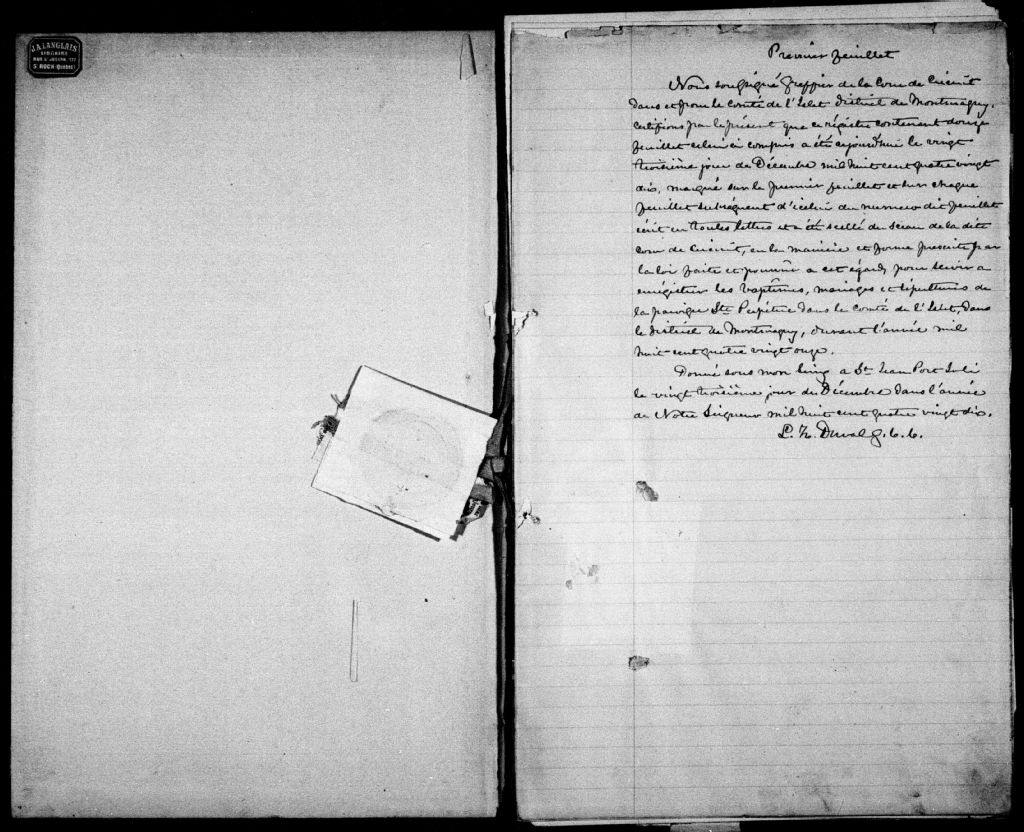 J.A. LANGLAIS
LIBRAIRE
RUE St JOSEPH, 177
St ROCH (Québec)
Premier feuillet
Nous soussigné Greffier de la Cour de Circuit
dans et pour le Comté de l'Islet District de Montmagny,
certifions par le présent que ce régistre contenant douze
feuillet celui ci compris a été aujourd'hui le vingt
troisième jour de Décembre mil huit cent quatre vingt
dix, marqué sur le premier feuillet et sur chaque
feuillet subséquent d'icelui du numero dit feuillet
écrit en toutes lettres et a été scellé du sceau de la dite
cour de Circuit, en la manière et forme prescrite par
la loi faite et pourvue a cet égard, pour servir a
enrégistrer les baptêmes, mariages et sépultures de
la paroisse Ste Perpétue dans le comté de l'Islet, dans
le district de Montmagny, durant l'année mil
huit cent quatre vingt onze.
Donné sous mon seing a St Jean Port Joli
le vingt troisième jour de Décembre dans l'année
de Notre Seigneur mil huit cent quatre vingt dix.
L. Z. Duval G. C. C.